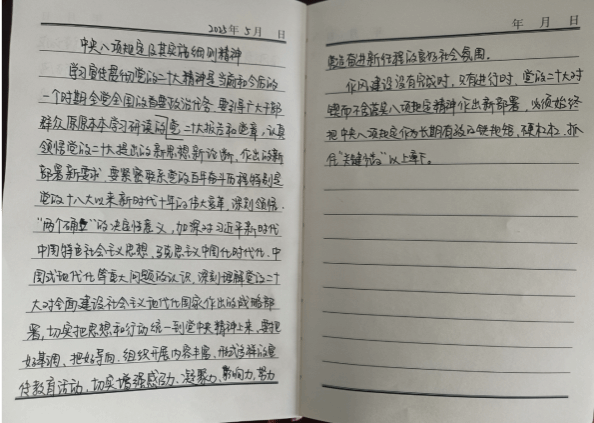 2025年5月 日
中央八项规定及其实施细则精神
学习宣传贯彻党的二十大精神是当前和今后的
一个时期全党全国的首要政治任务，要引导广大干部
群众原原本本学习研读党的二十大报告和党章，认真
领悟党的二十大提出的新思想新论断、作出的新
部署新要求，要紧密联系党的百年奋斗历程特别是
党的十八大以来新时代十年的伟大变革，深刻领悟
“两个确立”的决定性意义，加深对习近平新时代
中国特色社会主义思想，马克思主义中国化时代化、中
国式现代化等重大问题的认识，深刻理解党的二十
大对全面建设社会主义现代化国家作出的战略部
署，切实把思想和行动统一到党中央精神上来，要把
好基调、把好导向，组织开展内容丰富、形式多样的宣
传教育活动，切实增强感召力、凝聚力、影响力，努力
年 月 日
营造奋进新征程的良好社会氛围。
作风建设没有完成时，只有进行时，党的二十大对
锲而不舍落实八项规定精神作出新部署，必须始终
把中央八项规定作为长期有效的铁规矩、硬杠杠，抓
住“关键少数”以上率下。